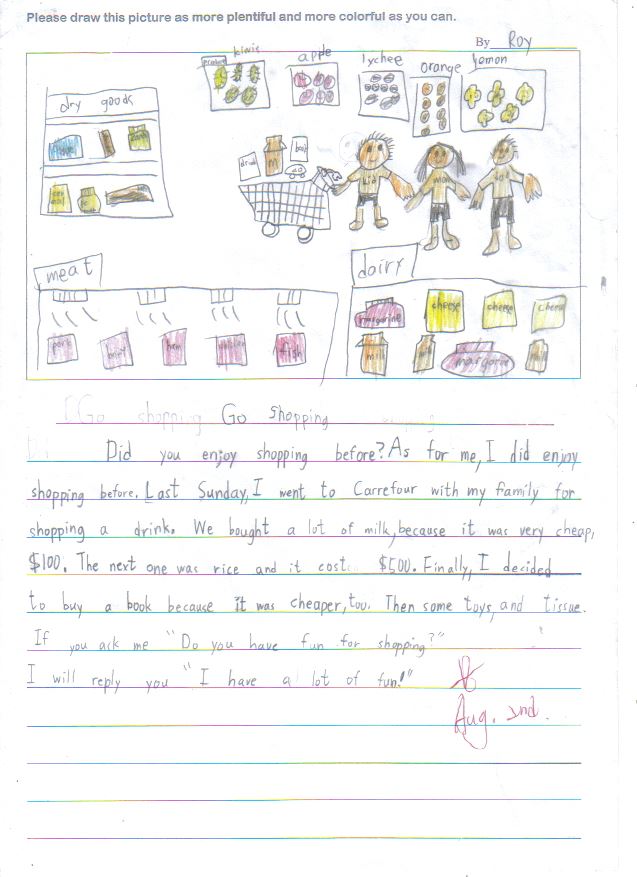 Please draw this picture as more plentiful and more colorful as you can.
By Roy
produce kiwis apple lychee orange lemon
dry goods
drink m
kid mom
meat
dairy
margarine cheese cheese
pork ham fish
milk milk margarine milk
Go shopping Go shopping
Did you enjoy shopping before? As for me, I did enjoy
shopping before. Last Sunday, I went to Carrefour with my family for
shopping a drink. We bought a lot of milk, because it was very cheap,
$100. The next one was rice and it cost $500. Finally, I decided
to buy a book because it was cheaper, too. Then some toys, and tissue.
If you ask me "Do you have fun for shopping?"
I will reply you "I have a lot of fun!"
Aug. 2nd.